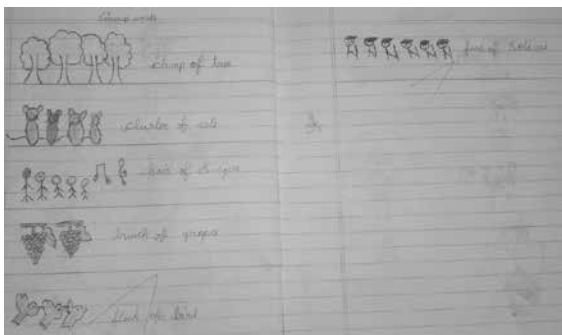 Group words
clump of trees
cluster of cats
choir of singers
bunch of grapes
flock of bird
of soldiers